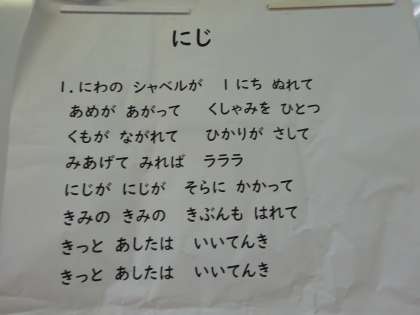 にじ
1.にわの シャベルが 1にち ぬれて
あめが あがって くしゃみを ひとつ
くもが ながれて ひかりが さして
みあげて みれば ラララ
にじが にじが そらに かかって
きみの きみの きぶんも はれて
きっと あしたは いいてんき
きっと あしたは いいてんき